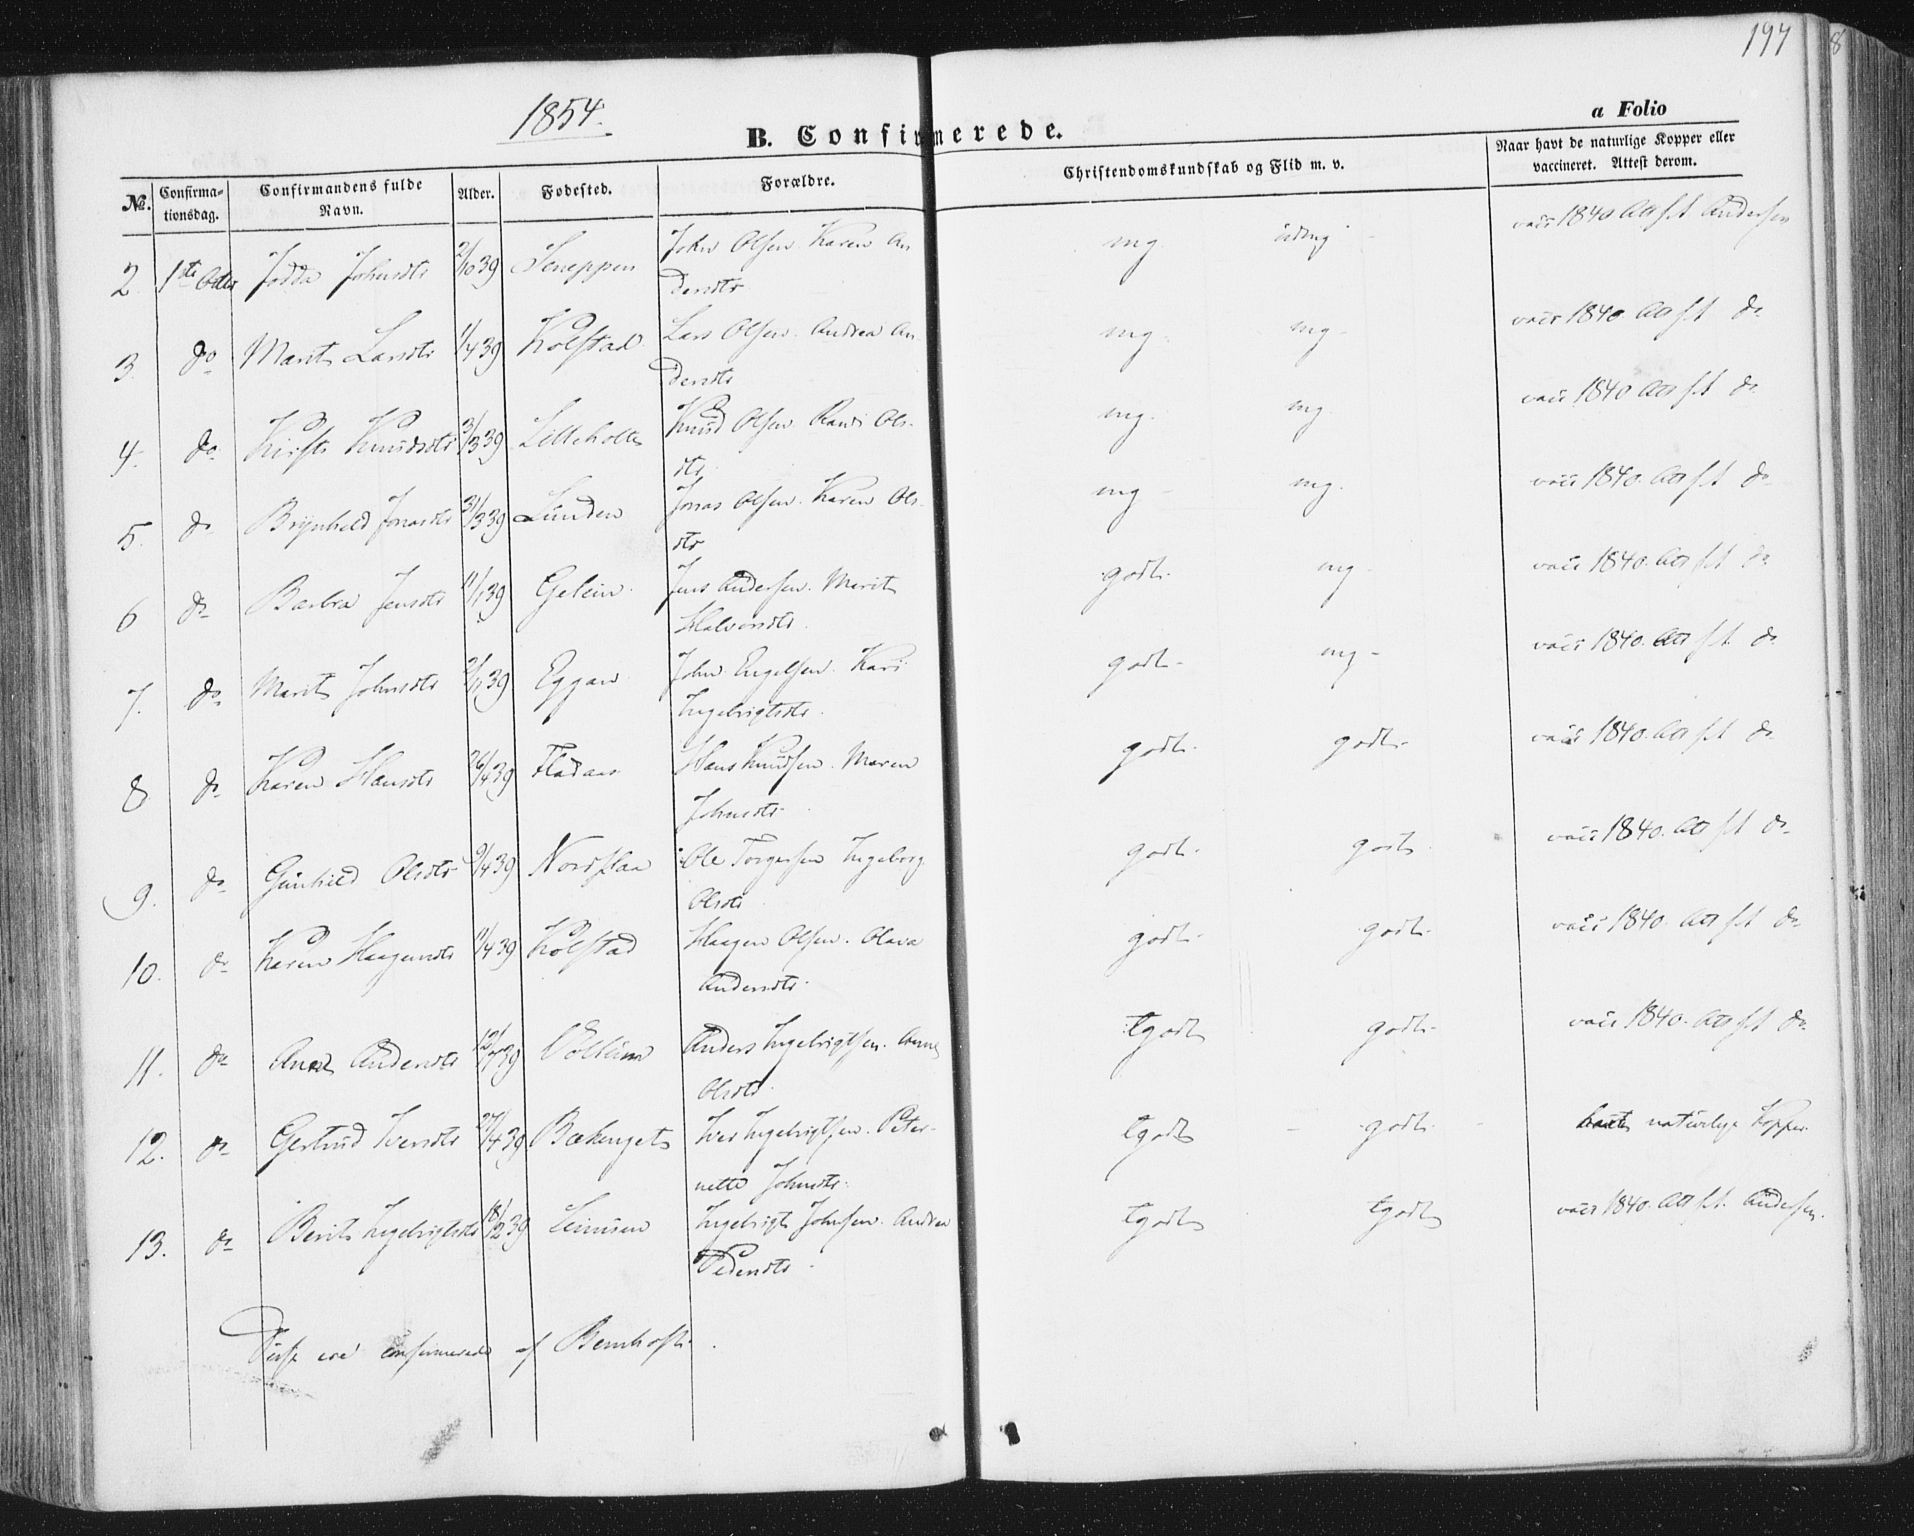 197
8
1854.
B. Confirmerede.
a Folio
No. Confirma-tionsdag. Confirmandens fulde Navn. Alder. Fødested. Forældre. Christendomskundskab og Flid m. v. Naar havt de naturlige Kopper eller vaccineret. Attest derom.
2 1ste Octbr Johnsdtr 2/10 39 John Olsen. Karen An mg vacc 1840 Att f.t Andersen
dersdtr
3. do Marit Larsdtr 1/4 39 Kolstad Lars Olsen. Andrea An mg. mg vacc 1840. Att f.t do
dersdtr
4. do Knudsdtr 3/3 39 Lilleholte Knud Olsen. Randi Ols- mg. mg. vacc 1840 Att f.t do
dtr
5. do Brynhild Jonasdtr 31/3 39 Lunden Jonas Olsen. Karen Ols- mg mg. vacc 1840. Att f.t do
dtr
6 do Barbra Jensdtr 11/1 39 Jens Andersen. Marit godt. mg vacc 1840. Att f.t do
Halvorsdtr.
7. do Marit Johnsdtr Eggan John Engelsen. Kari godt mg vacc 1840. Att f.t do
Ingebrigtsdtr.
8 do Karen Hansdtr 26/4 39 Fladaas Hans Knudsen. Maren godt. godt. vacc 1840. Att f.t do
Johnsdtr
9. do Gunhild Olsdtr 9/4 39 Ole Torgersen Ingeborg godt. godt. vacc 1840. Att f.t do
Olsdtr
10. do Karen Haagensdtr 11/4 39 Kolstad Haagen Olsen. Olava godt. godt. vacc 1840. Att f.t do
Andersdtr.
11. do Andersdtr 12/7 39 Vollum Anders Ingebrigtsen. Anne tgodt godt. vacc 1840. Att f.t do
Olsdtr.
12. do Gertrud Iversdtr 27/4 39 Bækenget Iver Ingebrigtsen. Peter- tgodt godt. havt naturlige Kopper
nette Johnsdtr.
13. do Berit Ingebrigtsdtr 18/2 39 Ingebrigt Johnsen. Andrea tgodt tgodt vacc 1840. Att f.t. Andersen.
Pedersdtr
Disse ere confirmerede af Bernhoft.